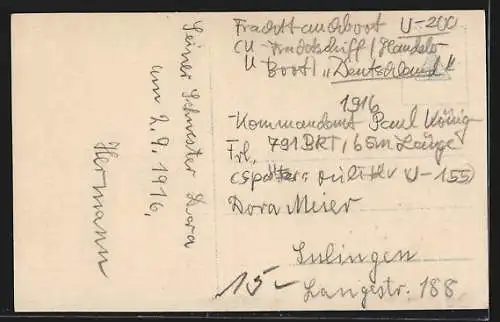 Seiner Schwester Dora
am 2.9.1916.
Hermann
Frachttauchboot U-200
(U-Frachtschiff/Handels-
U Boot) "Deutschland"
1916
Kommandant Paul König
791 BRT, 65m Länge
Frl.
(später: militär U-155)
Dora Meier
Sulingen
Langestr. 188
15-